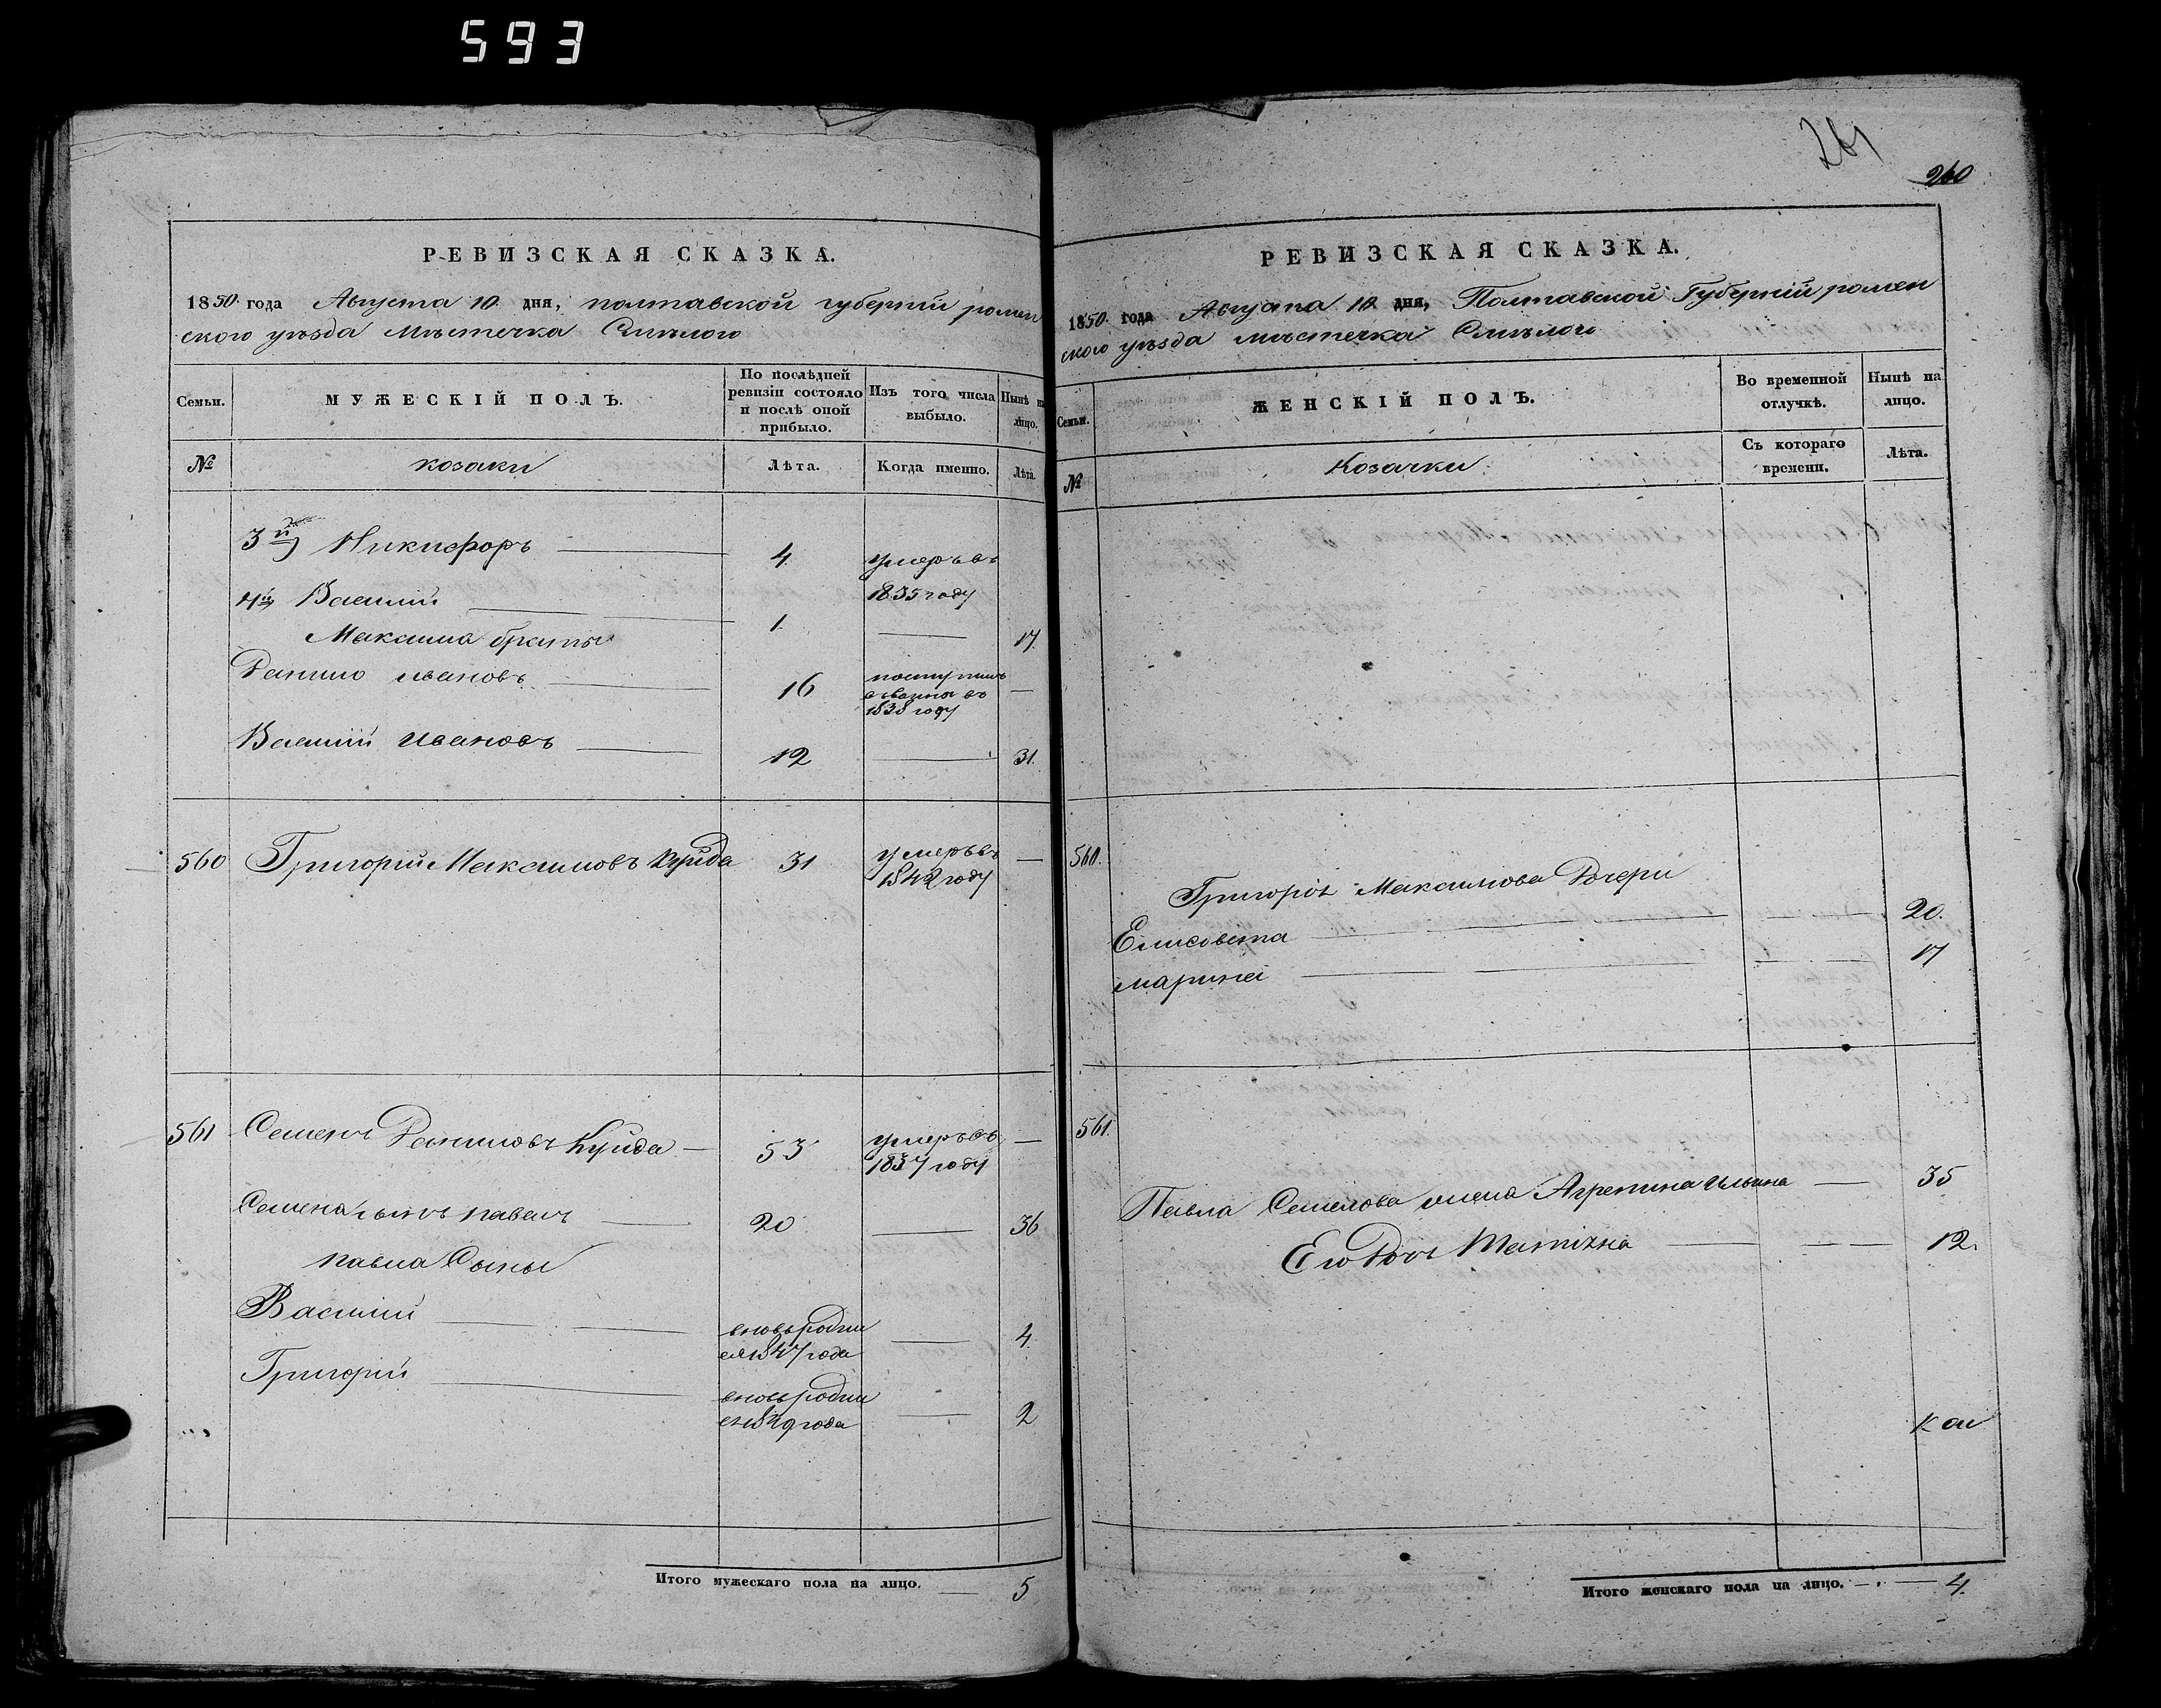 593
РЕВИЗСКАЯ СКАЗКА.
1850 года Августа 10 дня, полтавской губернïи ромен
ского уѣзда мѣстечка Смѣлого
Семьи.
МУЖЕСКІЙ ПОЛЪ.
По послѣдней ревизіи состояло и послѣ оной прибыло.
Изъ того числа выбыло.
Нынѣ на лицо.
№
козаки
Лѣта.
Когда именно.
Лѣта.
3й Никифоръ 4. умеръ въ
1835 году
4й Василий 1. 17.
Максима браты
Данило ивановъ 16
1838 году
Василий Ивановъ 12 31.
560 Григорий Максимовъ Куйда 31 умеръ въ
1842 году
561 Семенъ Даниловъ Куйда 53 умеръ въ
1837 году
Семена сынъ павелъ 20 36
павла Сыны
Василий вновь роди 4.
ся 1847 года
Григорий вновь роди 2
ся 1849 года
Итого мужескаго пола на лицо. 5
261
260
РЕВИЗСКАЯ СКАЗКА.
1850 года Августа 10 дня, Полтавской Губернïи ромен
ского уѣзда мѣстечка Смѣлого
Семьи.
ЖЕНСКІЙ ПОЛЪ.
Во временной отлучкѣ.
Нынѣ на лицо.
№
Козачки
Съ котораго времени.
Лѣта.
560.
Григорія Максимова Дочери
Елисовета 20.
марина 17
561.
Павла Семенова жена Агрепина Ильина 35
Его Дочь Татіяна 12.
Итого женскаго пола на лицо. 4.